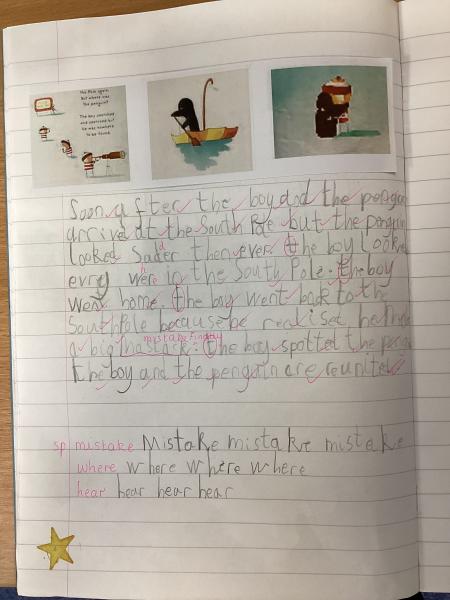 the Pole again.
But where was
the penguin?
The boy searched
and searched but
he was nowhere
to be found.
Soon after the boy and the penguin
arrive at the South Pole but the penguin
looked Sader then ever. the boy looked
evry were in the South Pole. the boy
went home. the boy went back to the
South Pole because he realised he made
mistake Finally
a big mastack. the boy spotted the
the boy and the penguin are reunited
sp mistake Mistake mistake mistake
where where where where
hear hear hear hear